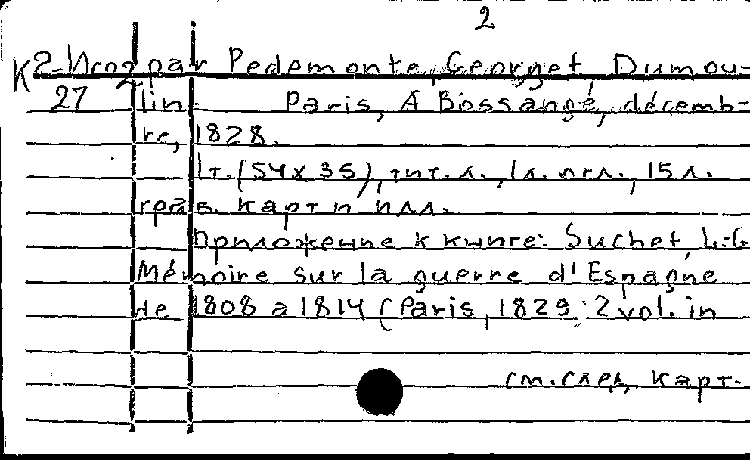 2
K2-Исп par Pedemonte, Georget, Dumou-
27 lin. Paris, A Bossange, décemb-
re, 1828.
1 т. (54x35), тит. л., 1 л. огл., 15 л.
грав. карт и илл.
Приложение к книге: Suchet, L.-G.
Mémoire sur la guerre d'Espagne
de 1808 a 1814 (Paris, 1829; 2 vol. in
см. след. карт.